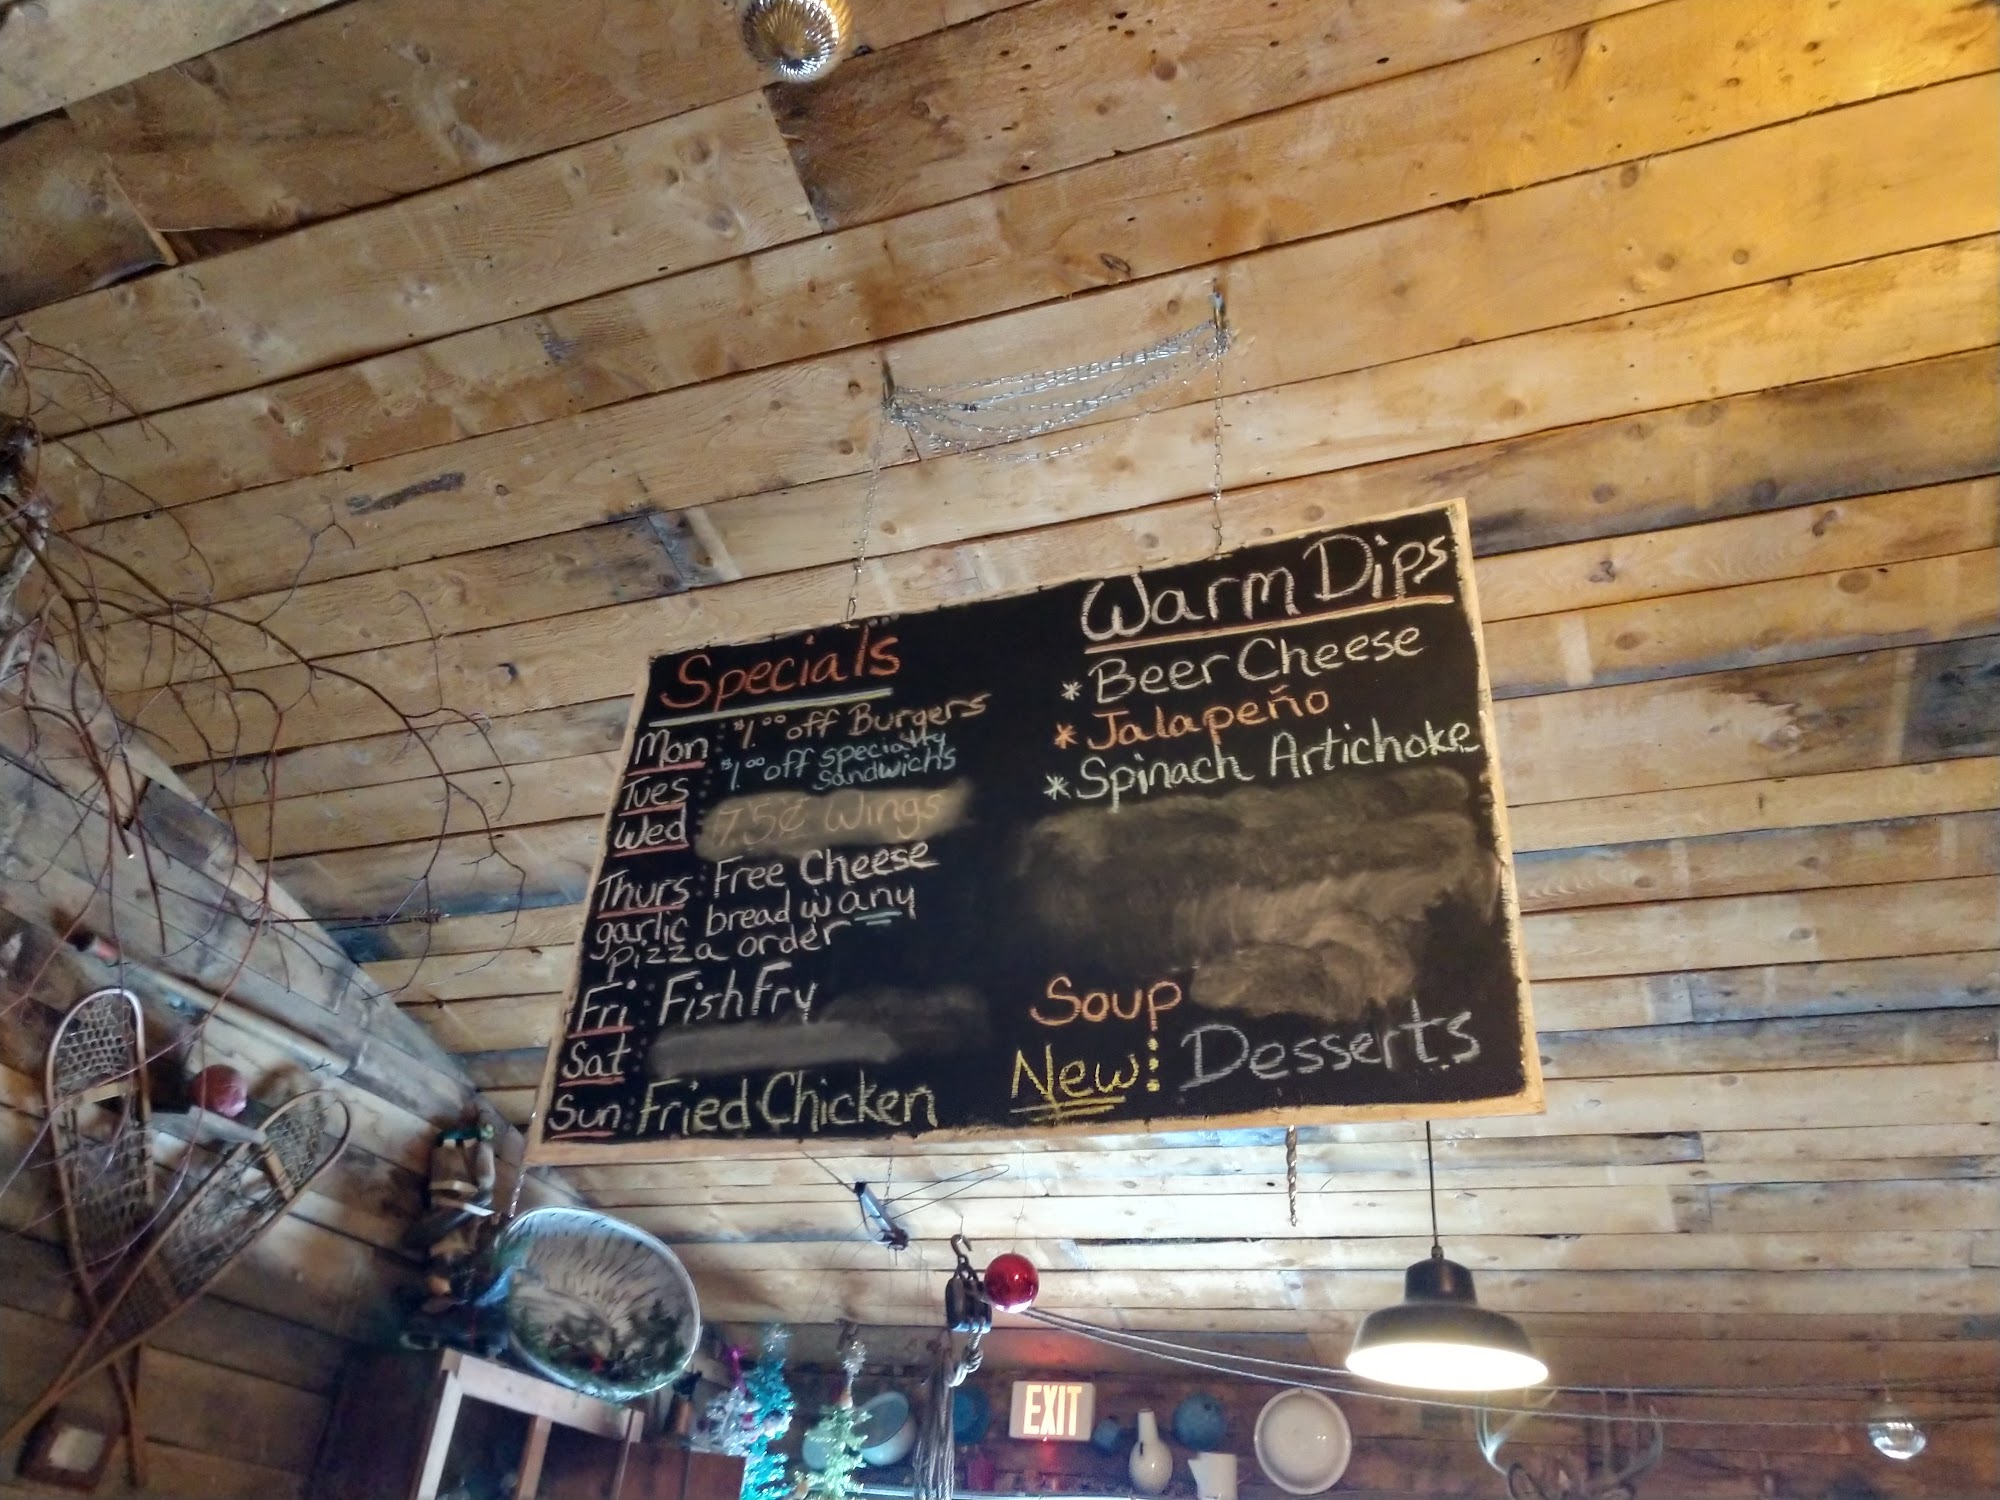 Specials
Mon: $1.00 off Burgers
Tues: $1.00 off specialty
Sandwichs
Wed: 75¢ Wings
Thurs: Free Cheese
garlic bread w any
pizza order
Fri: Fish Fry
Sat:
Sun: Fried Chicken
Warm Dips
* Beer Cheese
* Jalapeño
* Spinach Artichoke
Soup
New: Desserts
EXIT